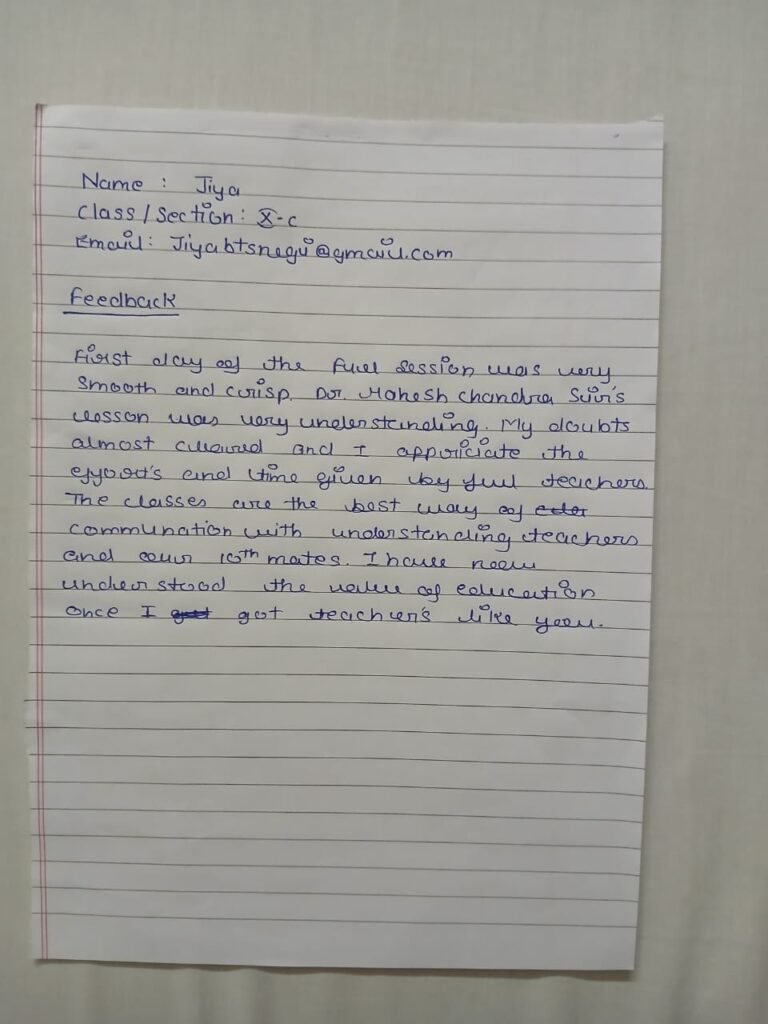 Name : Jiya
Class / Section : X-C
Email : Jiyabtsnegi@gmail.com
Feedback
First day of the fuel session was very
smooth and crisp. Dr. Mahesh Chandra Suri's
lesson was very understanding. My doubts
almost cleared and I appriciate the
effort's and time given by fuel teachers.
The classes are the best way of
communation with understanding teachers
and our 10th mates. I have now
understood the value of education
once I got teacher's like you.